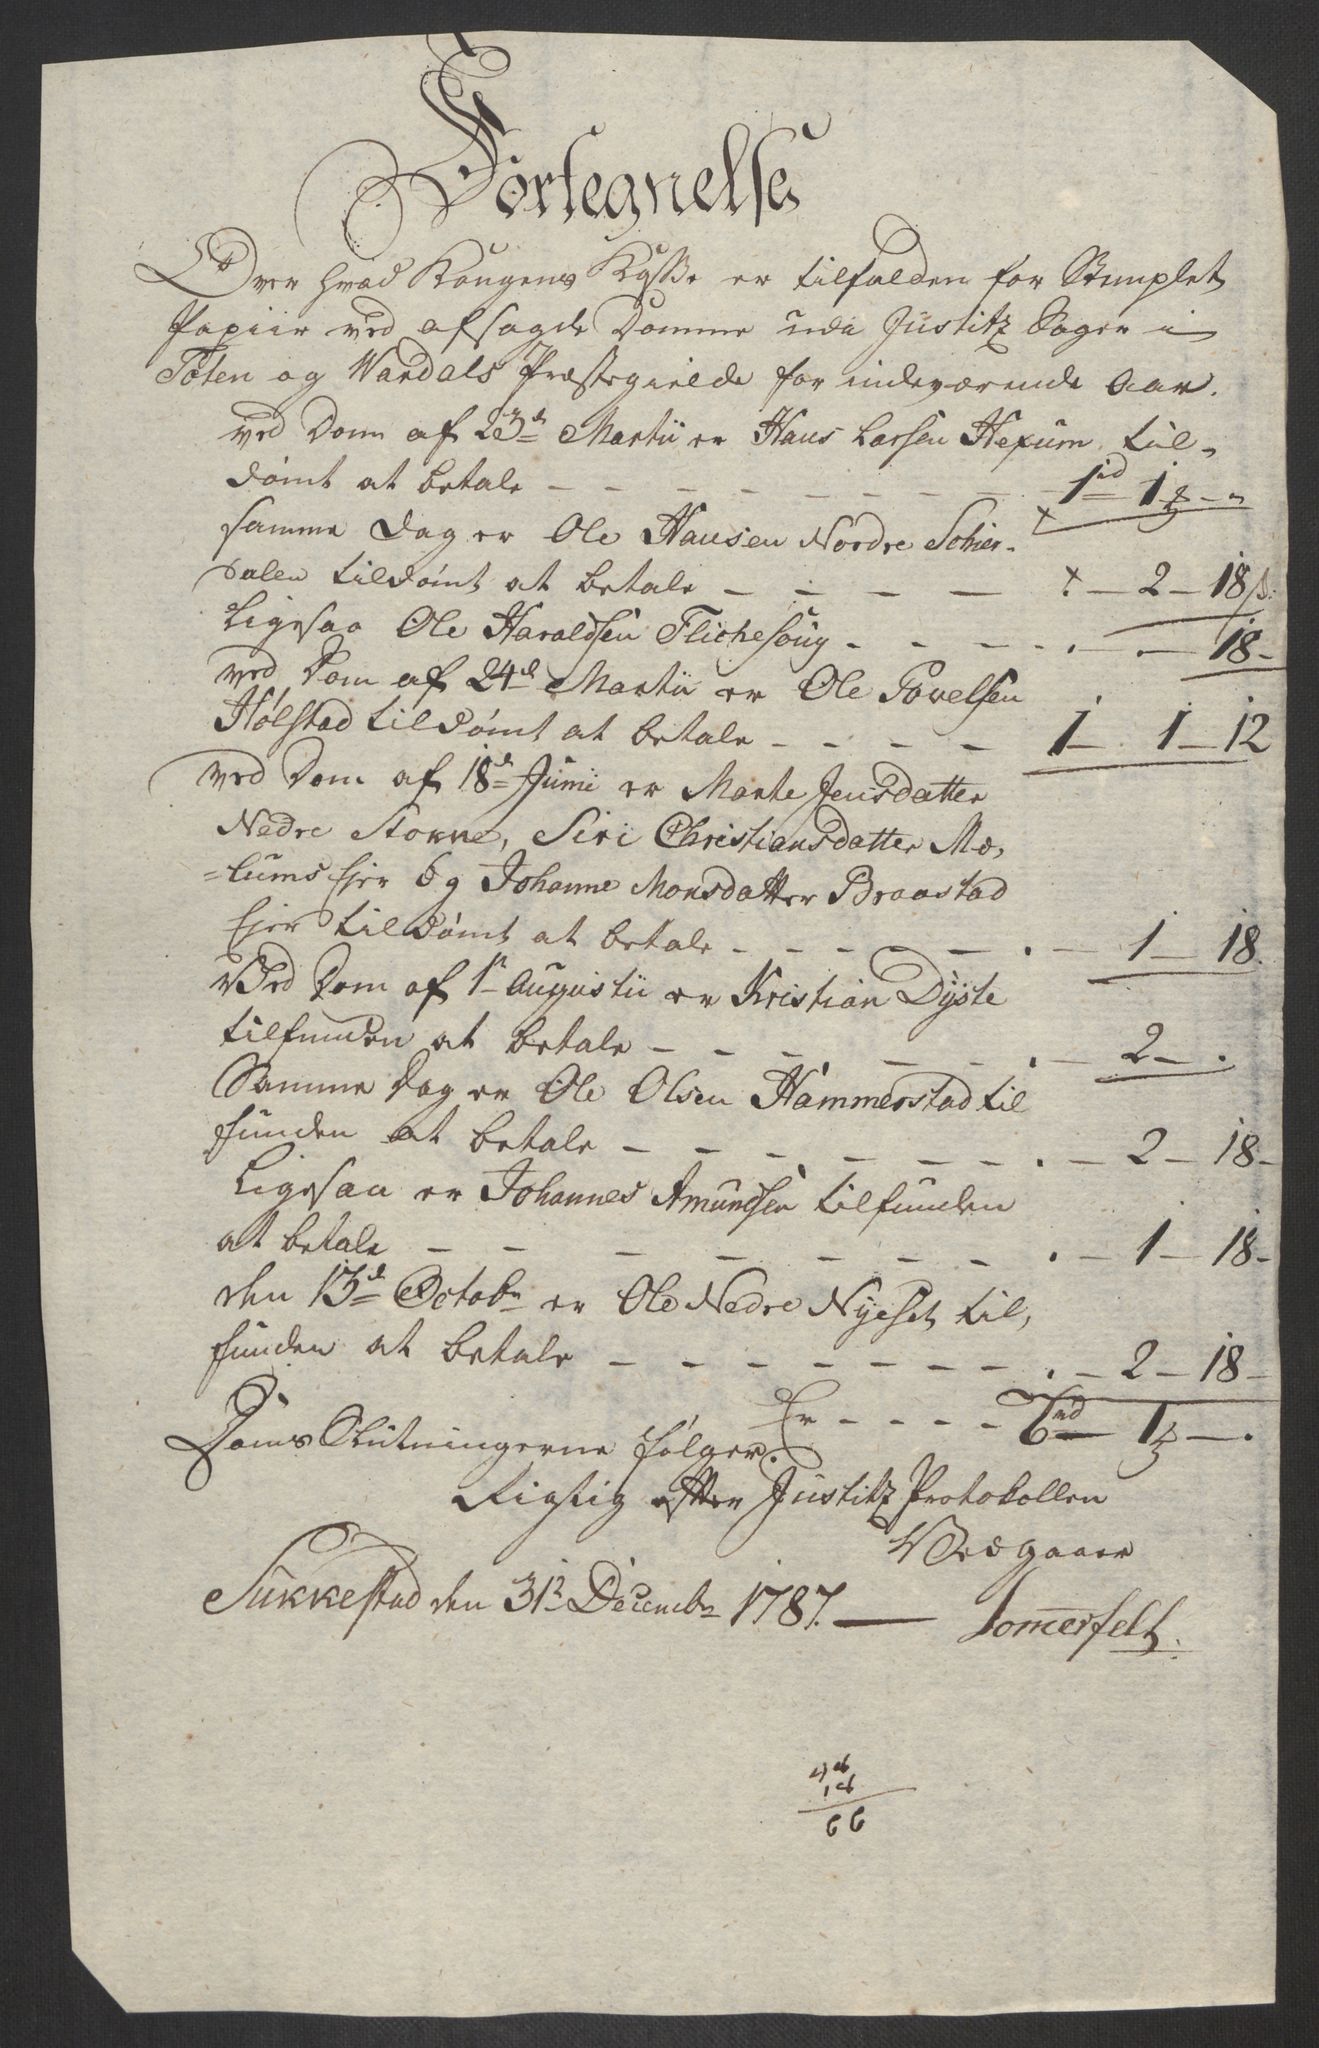 Fortegnelse
Over hvad Kongens Kasse er tilfalden for Stemplet
Papiir ved afsagde Domme udi Justitz Sager i
Toten og Wardals Præstegield for indeværende Aar.
ved Dom af 23d Martii er Hans Larsen Hexum til-
dømt at betale - - - - - - - - - 1rd 1 ₰ - "
samme Dag er Ole Hansen Nordre Schier-
dalen tildømt at betale - - - - - . - 2 - 18 s.
Ligesaa Ole Haraldsen Flichesoug - - - . - 18 -
ved Dom af 24d Martii er Ole Povelsen
Hølstad tildømt at betale - - - - 1 - 1 - 12
ved Dom af 18d Junii er Marte Jensdatter
Nedre Stokke, Siri Christiansdatter Mæ-
=lums Ejer og Johanne Monsdatter Braastad
Ejer tildømt at betale - - - - - . - 1 - 18.
Ved Dom af 1st Augustii er Kristian Dyste
tilfunden at betale - - - - - - . - 2 - .
Samme Dag er Ole Olsen Hammerstad til
funden at betale - - - - - - - . - 2 - 18 -
Ligesaa er Johannes Amundsen tilfunden
at betale - - - - - - - - . - 1 - 18 -
den 13d Octobr er Ole Nedre Nyeset til,
funden at betale - - - - - - - . - 2 - 18 -
Er - - - - 6rd 1 ₰ - .
Doms Slutningerne følger
Rigtig efter Justitz Protokollen
Vedgaaer
Sukkestad den 31te Decembr 1787. - Somerfelt.
48
18
66